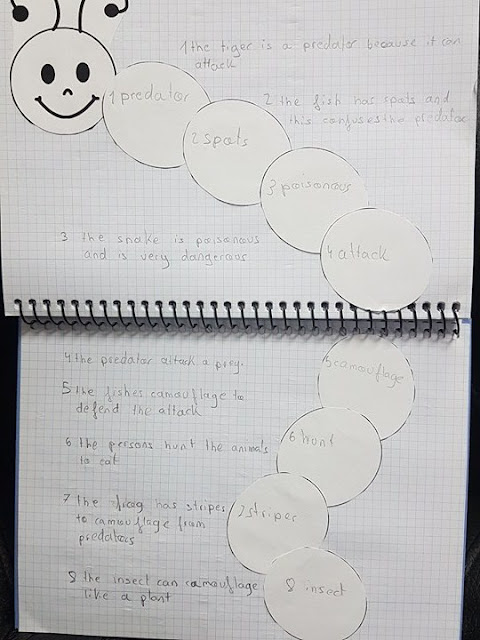 1 the tiger is a predator because it can
attack
1 predator
2 the fish has spats and
this confuses the predator
2 spats
3 poisonous
3 the snake is poisonous
and is very dangerous
4 attack
4 the predator attack a prey.
5 camouflage
5 the fishes camouflage to
defend the attack
6 the persons hunt the animals
to eat
6 hunt
7 the frog has stripes
to camouflage from
predators
7 stripes
8 the insect can camouflage
like a plant
8 insect